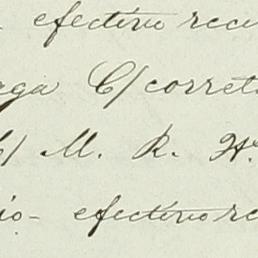 efectivo reci
aga C/ corret
C/ M. R. W.
io- efectivo re